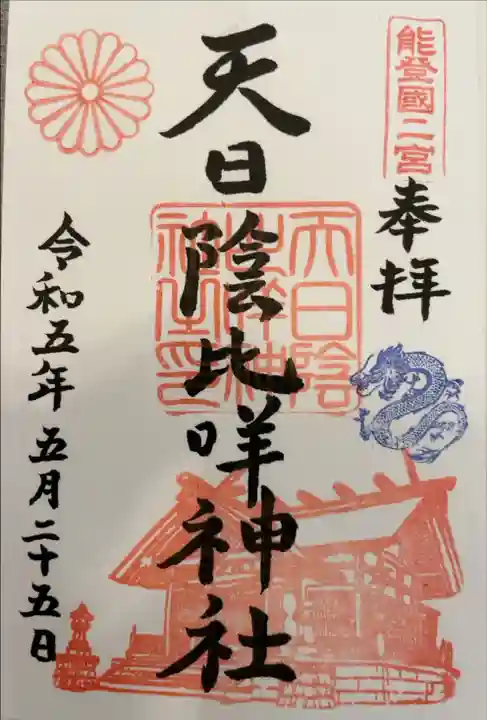 能登國二宮
奉拝
天日陰比咩神社
天日陰
比咩神
社之印
令和五年五月二十五日